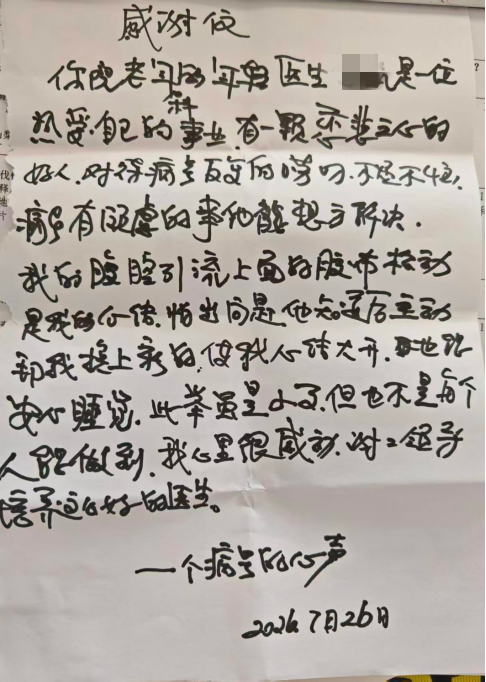 感谢信
你院老年科的年轻医生是一位
热爱自己的事业,有一颗慈悲之心的
好人.对待病号反复的唠叨.不急不怪.
病号有顾虑的事他能想方解决.
我的腹腔引流上面的胶布松动
是我的心结.怕出问是他知道后主动
却我换上新的,使我心结大开.也能
安心睡觉.此举虽是小事,但也不是每个
人能做到.我心里很感动.谢谢领导
培养这么好的医生。
一个病号的心声
2026年7月26日